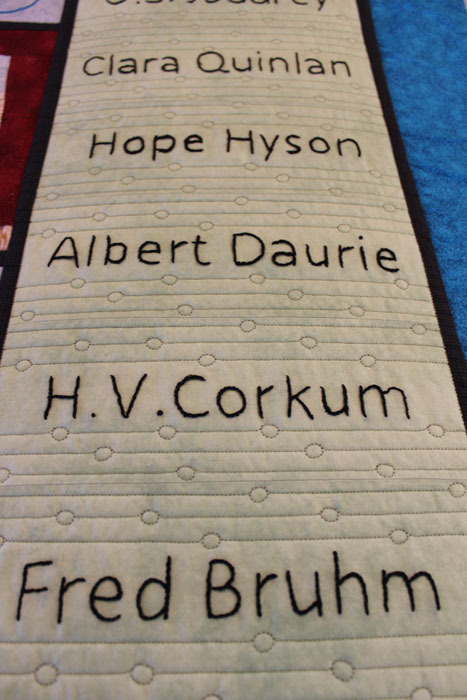 Clara Quinlan
Hope Hyson
Albert Daurie
H.V.Corkum
Fred Bruhm